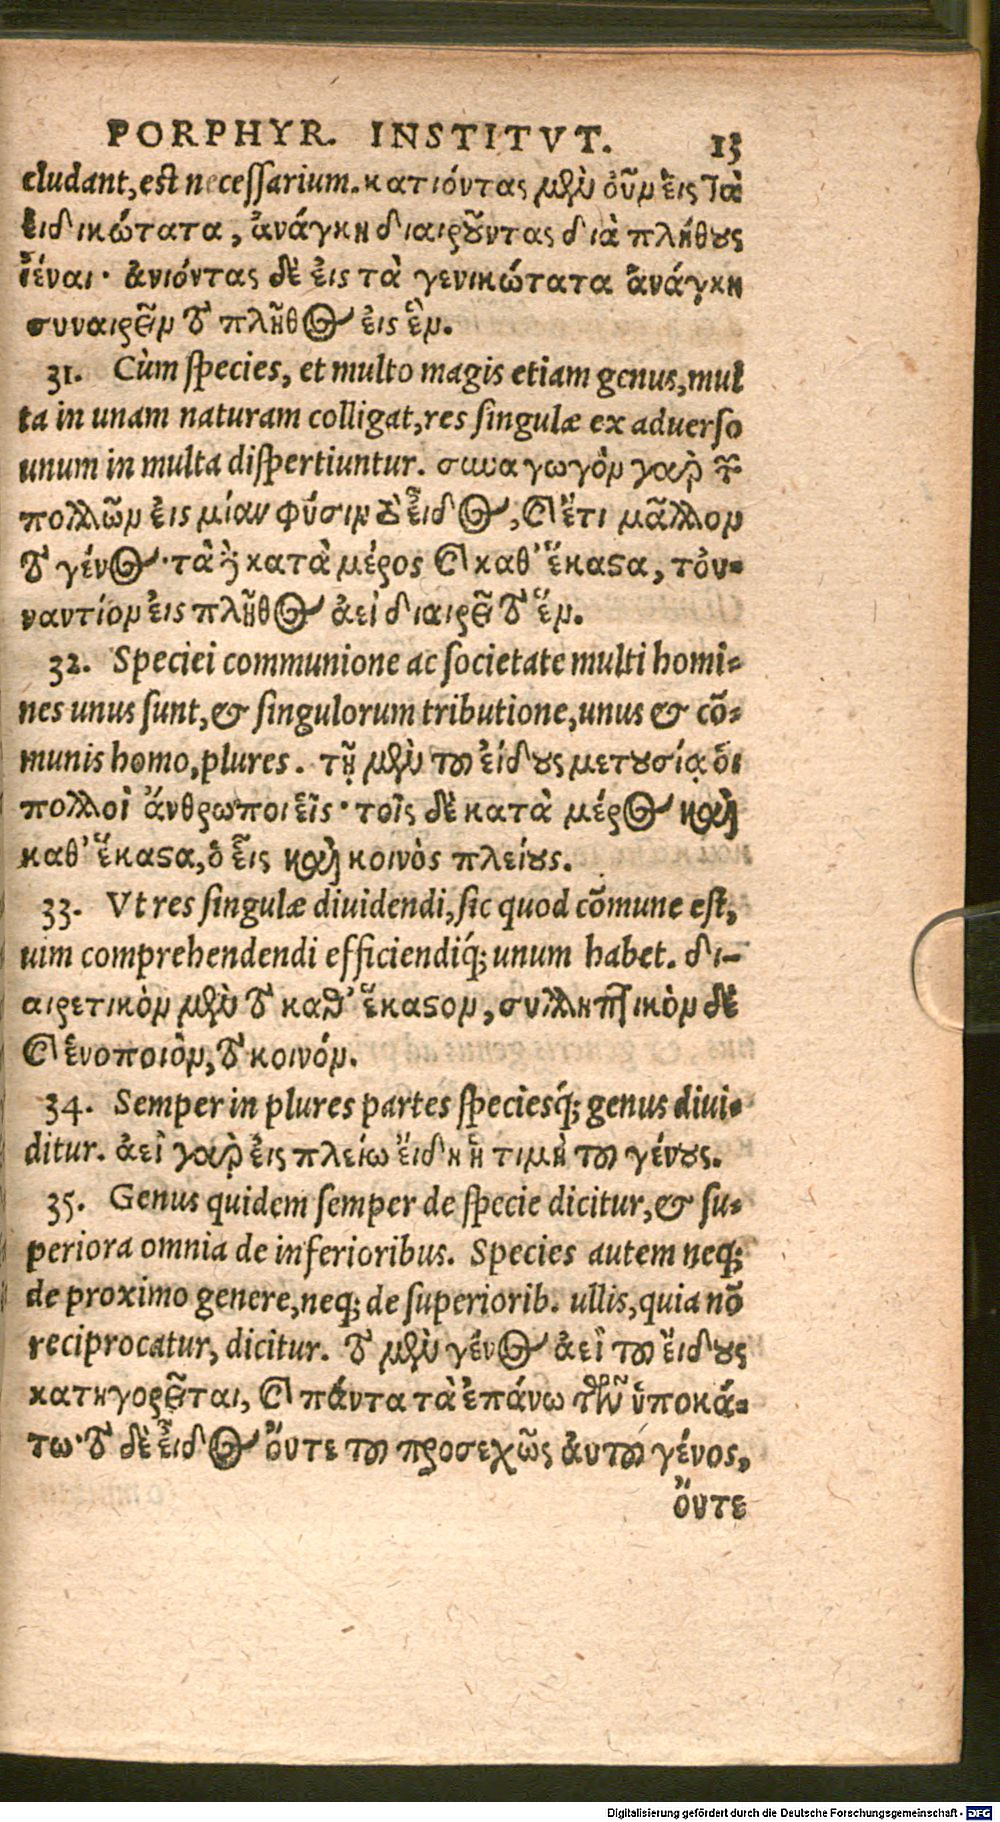 PORPHYR. INSTITVT. 13
cludant, est necessarium. κατιόντας μὲν οὖν εἰς τὰ
εἰδικώτατα, ἀνάγκη διαιροῦντας διὰ πλήθους
ἰέναι· ἀνιόντας δὲ εἰς τὰ γενικώτατα ἀνάγκη
συναιρεῖν τὸ πλῆθος εἰς ἕν.
31. Cùm species, et multo magis etiam genus, mul
ta in unam naturam colligat, res singulæ ex aduerso
unum in multa dispertiuntur. συναγωγὸν γὰρ τῶν
πολλῶν εἰς μίαν φύσιν τὸ εἶδος, καὶ ἔτι μᾶλλον
τὸ γένος· τὰ δὲ κατὰ μέρος καὶ καθ' ἕκαστα, τοὐ-
ναντίον εἰς πλῆθος ἀεὶ διαιρεῖ τὸ ἕν.
32. Speciei communione ac societate multi homi-
nes unus sunt, & singulorum tributione, unus & cō-
munis homo, plures. τῇ μὲν τοῦ εἴδους μετουσίᾳ οἱ
πολλοὶ ἄνθρωποι εἷς· τοῖς δὲ κατὰ μέρος καὶ
καθ' ἕκαστα, ὁ εἷς καὶ κοινὸς πλείους.
33. Vt res singulæ diuidendi, sic quod cōmune est,
uim comprehendendi efficiendiq́; unum habet. δι-
αιρετικὸν μὲν τὸ καθ' ἕκαστον, συλληπτικὸν δὲ
καὶ ἑνοποιὸν, τὸ κοινόν.
34. Semper in plures partes speciesq́; genus diui-
ditur. ἀεὶ γὰρ εἰς πλείω εἴδη ἡ τιμὴ τοῦ γένους.
35. Genus quidem semper de specie dicitur, & su-
periora omnia de inferioribus. Species autem neq;
de proximo genere, neq; de superiorib. ullis, quia nō
reciprocatur, dicitur. τὸ μὲν γένος ἀεὶ τοῦ εἴδους
κατηγορεῖται, καὶ πάντα τὰ ἐπάνω τῶν ὑποκά-
τω· τὸ δὲ εἶδος οὔτε τοῦ προσεχῶς αὐτοῦ γένος,
οὔτε
Digitalisierung gefördert durch die Deutsche Forschungsgemeinschaft - DFG